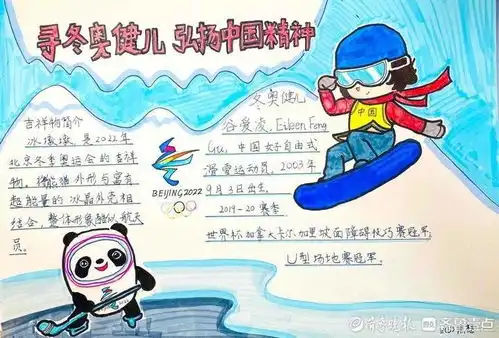 寻冬奥健儿 弘扬中国精神
吉祥物简介
冰墩墩，是2022年
北京冬季奥运会的吉祥
物。将熊猫外形与富有
超能量的冰晶外壳相
结合，整体形象酷似航天
员。
BEIJING 2022
冬奥健儿
谷爱凌，Eileen Feng
Gu，中国女子自由式
滑雪运动员，2003年
9月3日出生。
2019-20赛季
世界杯加拿大卡尔加里坡面障碍技巧赛冠军
U型场地赛冠军.
中国
齐鲁晚报
齐鲁壹点